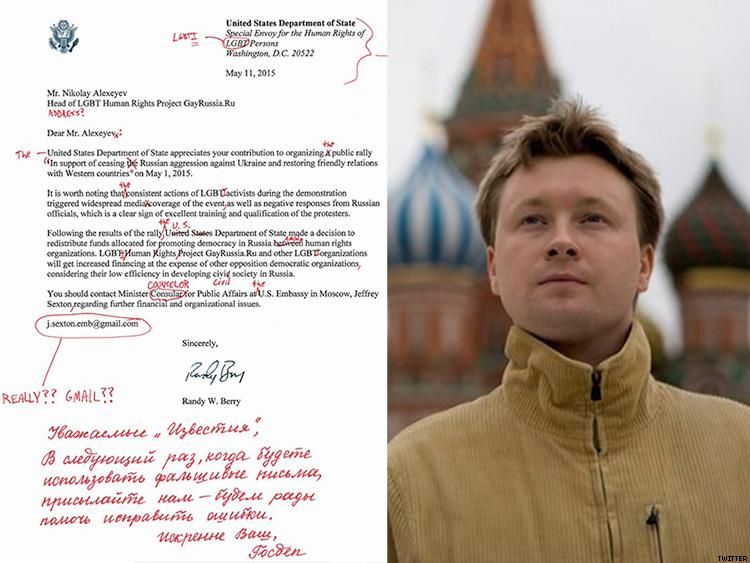 United States Department of State
LGBTI
Special Envoy for the Human Rights of
LGBT Persons
Washington, D.C. 20522
May 11, 2015
Mr. Nikolay Alexeyev
Head of LGBT Human Rights Project GayRussia.Ru
ADDRESS?
Dear Mr. Alexeyev,:
the
The United States Department of State appreciates your contribution to organizing public rally
"In support of ceasing the Russian aggression against Ukraine and restoring friendly relations
with Western countries" on May 1, 2015.
the
It is worth noting that consistent actions of LGBT activists during the demonstration
triggered widespread media coverage of the event, as well as negative responses from Russian
officials, which is a clear sign of excellent training and qualification of the protesters.
the U.S.
Following the results of the rally United States Department of State made a decision to
redistribute funds allocated for promoting democracy in Russia between human rights
among
organizations. LGBT Human Rights Project GayRussia.Ru and other LGBT organizations
will get increased financing at the expense of other opposition democratic organizations,
considering their low efficiency in developing civil society in Russia.
COUNSELOR civil the
You should contact Minister Consular for Public Affairs at U.S. Embassy in Moscow, Jeffrey
Sexton regarding further financial and organizational issues.
j.sexton.emb@gmail.com
Sincerely,
Randy Berry
Randy W. Berry
REALLY?? GMAIL??
Уважаемые „Известия",
В следующий раз, когда будете
использовать фальшивые письма,
присылайте нам – будем рады
помочь исправить ошибки.
Искренне Ваш,
Госдеп
TWITTER